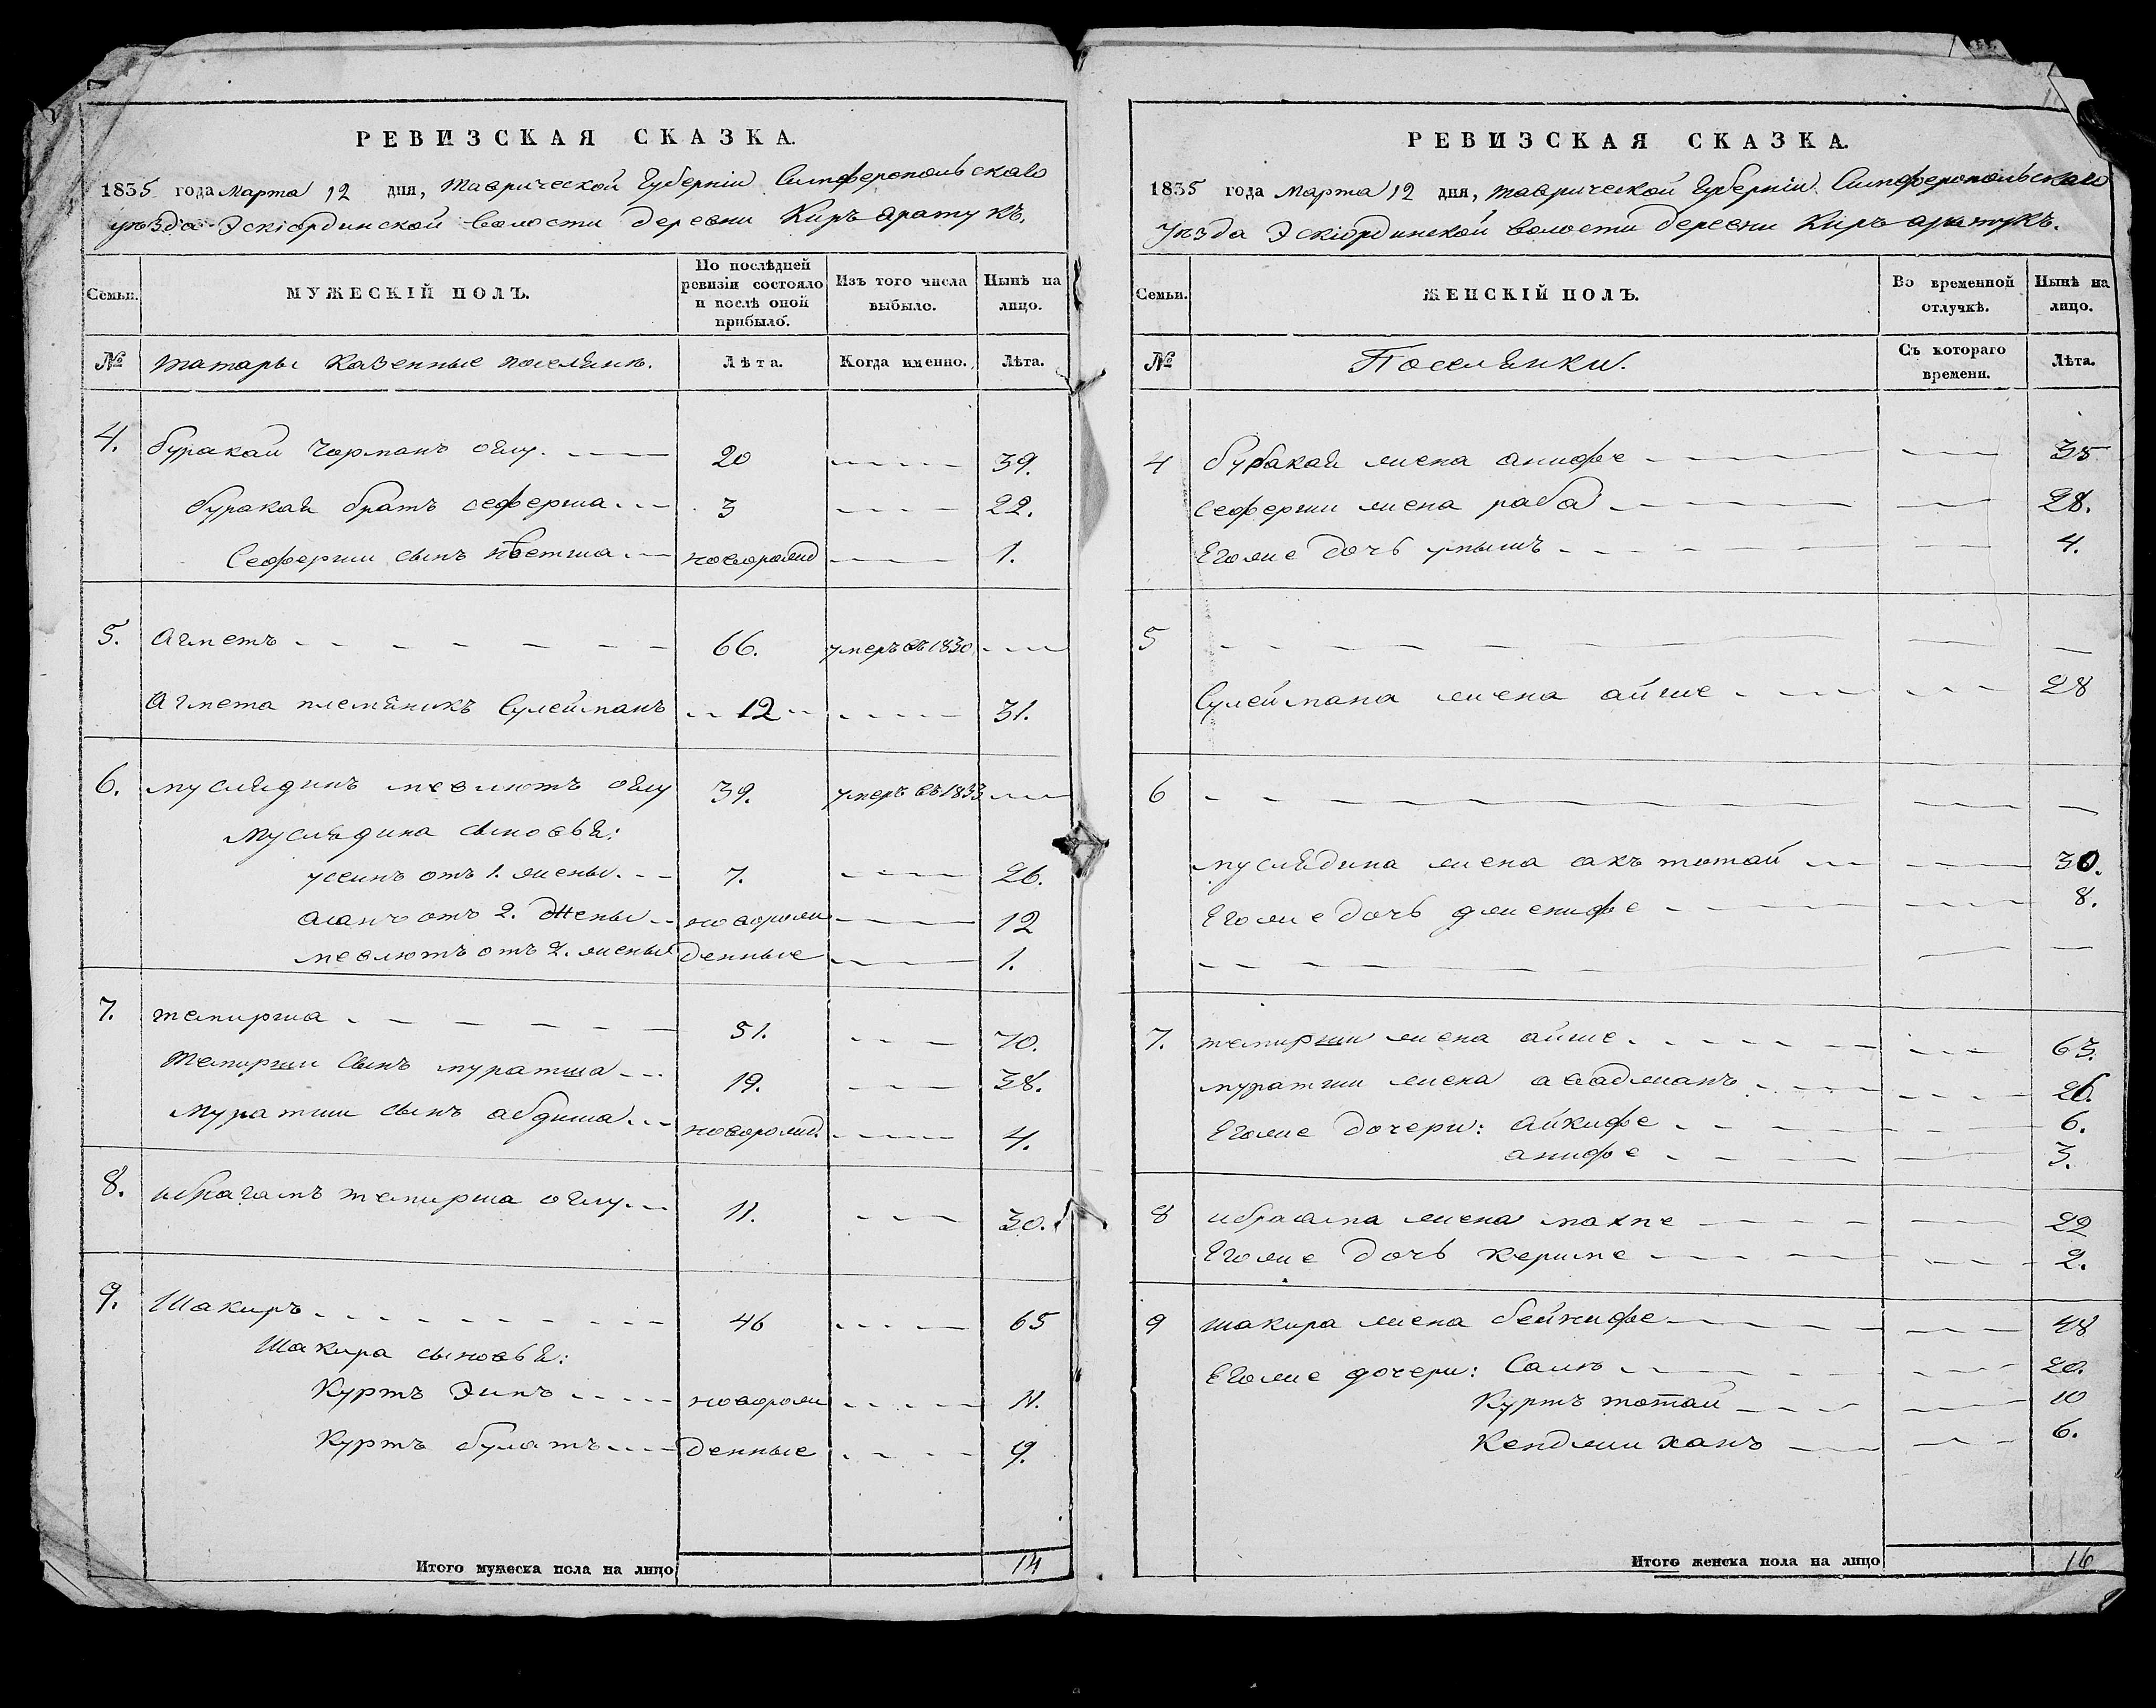 РЕВИЗСКАЯ СКАЗКА.
1835 года Марта 12 дня, Таврической Губерніи Симферопольскаго
уѣзда Эскіординской волости деревни Киръ аратукъ.
Семьи. МУЖЕСКІЙ ПОЛЪ. По послѣдней ревизіи состояло и послѣ оной прибыло. Изъ того числа выбыло. Нынѣ на лицо.
№ татары Казенные поселяне. Лѣта. Когда именно. Лѣта.
4. буракай Чорманъ оглу. 20 39.
буракая братъ сеферша 3 22.
Сеферши сынъ новорожд 1.
5. Агметъ 66. умеръ въ 1830
Агмета племяникъ Сулейманъ 12 31.
6. муслядинъ мевлютъ оглу 39. умеръ въ 1833
Муслядина сыновья:
усеинъ отъ 1. жены. 7. 26.
асанъ отъ 2. Жены новорож 12
мевлютъ отъ 2. жены денные 1.
7. темирша 51. 70.
Темирши Сынъ муратша 19. 38.
Муратши сынъ абдиша новорожд. 4.
8. ибрагамъ темирша оглу 11. 30.
9. Шакиръ 46 65
Шакира сыновья:
Куртъ Эипъ новорож 11.
Куртъ булатъ денные 9.
Итого мужеска пола на лицо 14
РЕВИЗСКАЯ СКАЗКА.
1835 года Марта 12 дня, таврической Губерніи Симферопольскаго
Уѣзда Эскіординской волости деревни Киръ аратукъ.
Семьи. ЖЕНСКІЙ ПОЛЪ. Во временной отлучкѣ. Нынѣ на лицо.
№ Поселянки. Съ котораго времени. Лѣта.
4 буракая жена анифе 35
сеферши жена раба 28.
Егоже дочь умышъ 4.
5
Сулеймана жена айше 28
6
муслядина жена сакъ тотай 30.
Егоже дочь дженифе 8.
7. темирши жена айше 63.
муратши жена 26.
Егоже дочери: айкифе 6.
анифе 3.
8 жена 22
Егоже дочь Кериме 2.
9 шакира жена бейнифе 48
Егоже дочери: 20.
Куртъ тотай 10
Кенджи ханъ 6.
Итого женска пола на лицо 16